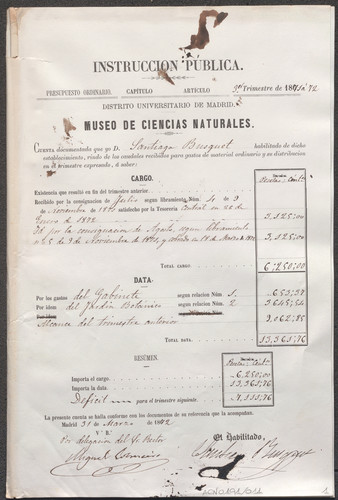 INSTRUCCION PÚBLICA.
PRESUPUESTO ORDINARIO. CAPÍTULO ARTICULO 3er Trimestre de 1871 á 72
DISTRITO UNIVERSITARIO DE MADRID.
MUSEO DE CIENCIAS NATURALES.
CUENTA documentada que yo D. Santiago Busquet habilitado de dicho
establecimiento, rindo de los caudales recibidos para gastos de material ordinario y su distribucion
en el trimestre expresado, á saber:
CARGO.
Existencia que resultó en fin del trimestre anterior.
Recibido por la consignacion de Julio segun libramiento Núm. de 9
de Noviembre de 1871 satisfecho por la Tesorería Central en 25 de
Enero de 1872 3,125.00
Id por la consignacion de Agosto, segun libramiento
de 9 de Noviembre de 1871, y cobrado en de Marzo de 1872 3,125.00
TOTAL CARGO. 6,250.00
DATA.
Por los gastos del Gabinete segun relacion Núm. 1.
Por idem del Jardin Botánico segun relacion Núm. 2
Alcance del trimestre anterior
TOTAL DATA. 13,365,76
RESÚMEN.
Importa el cargo. 6,250.00
Importa la data. 13,365,76
Déficit para el trimestre siguiente.
La presente cuenta se halla conforme con los documentos de su referencia que la acompañan.
Madrid 31 de Marzo de 1872
V.º B.º
Por delegacion del Sr Rector
El Habilitado,
Miguel Colmeiro